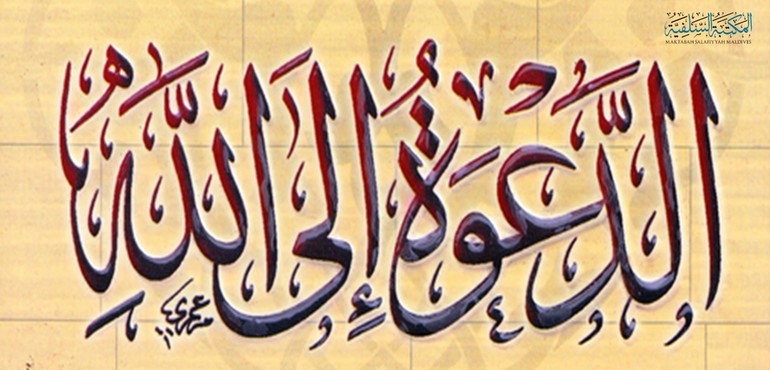 المكتبة السلفية
MAKTABAH SALAFIYYAH MALDIVES
الدَّعْوَةُ إِلَى اللَّهِ